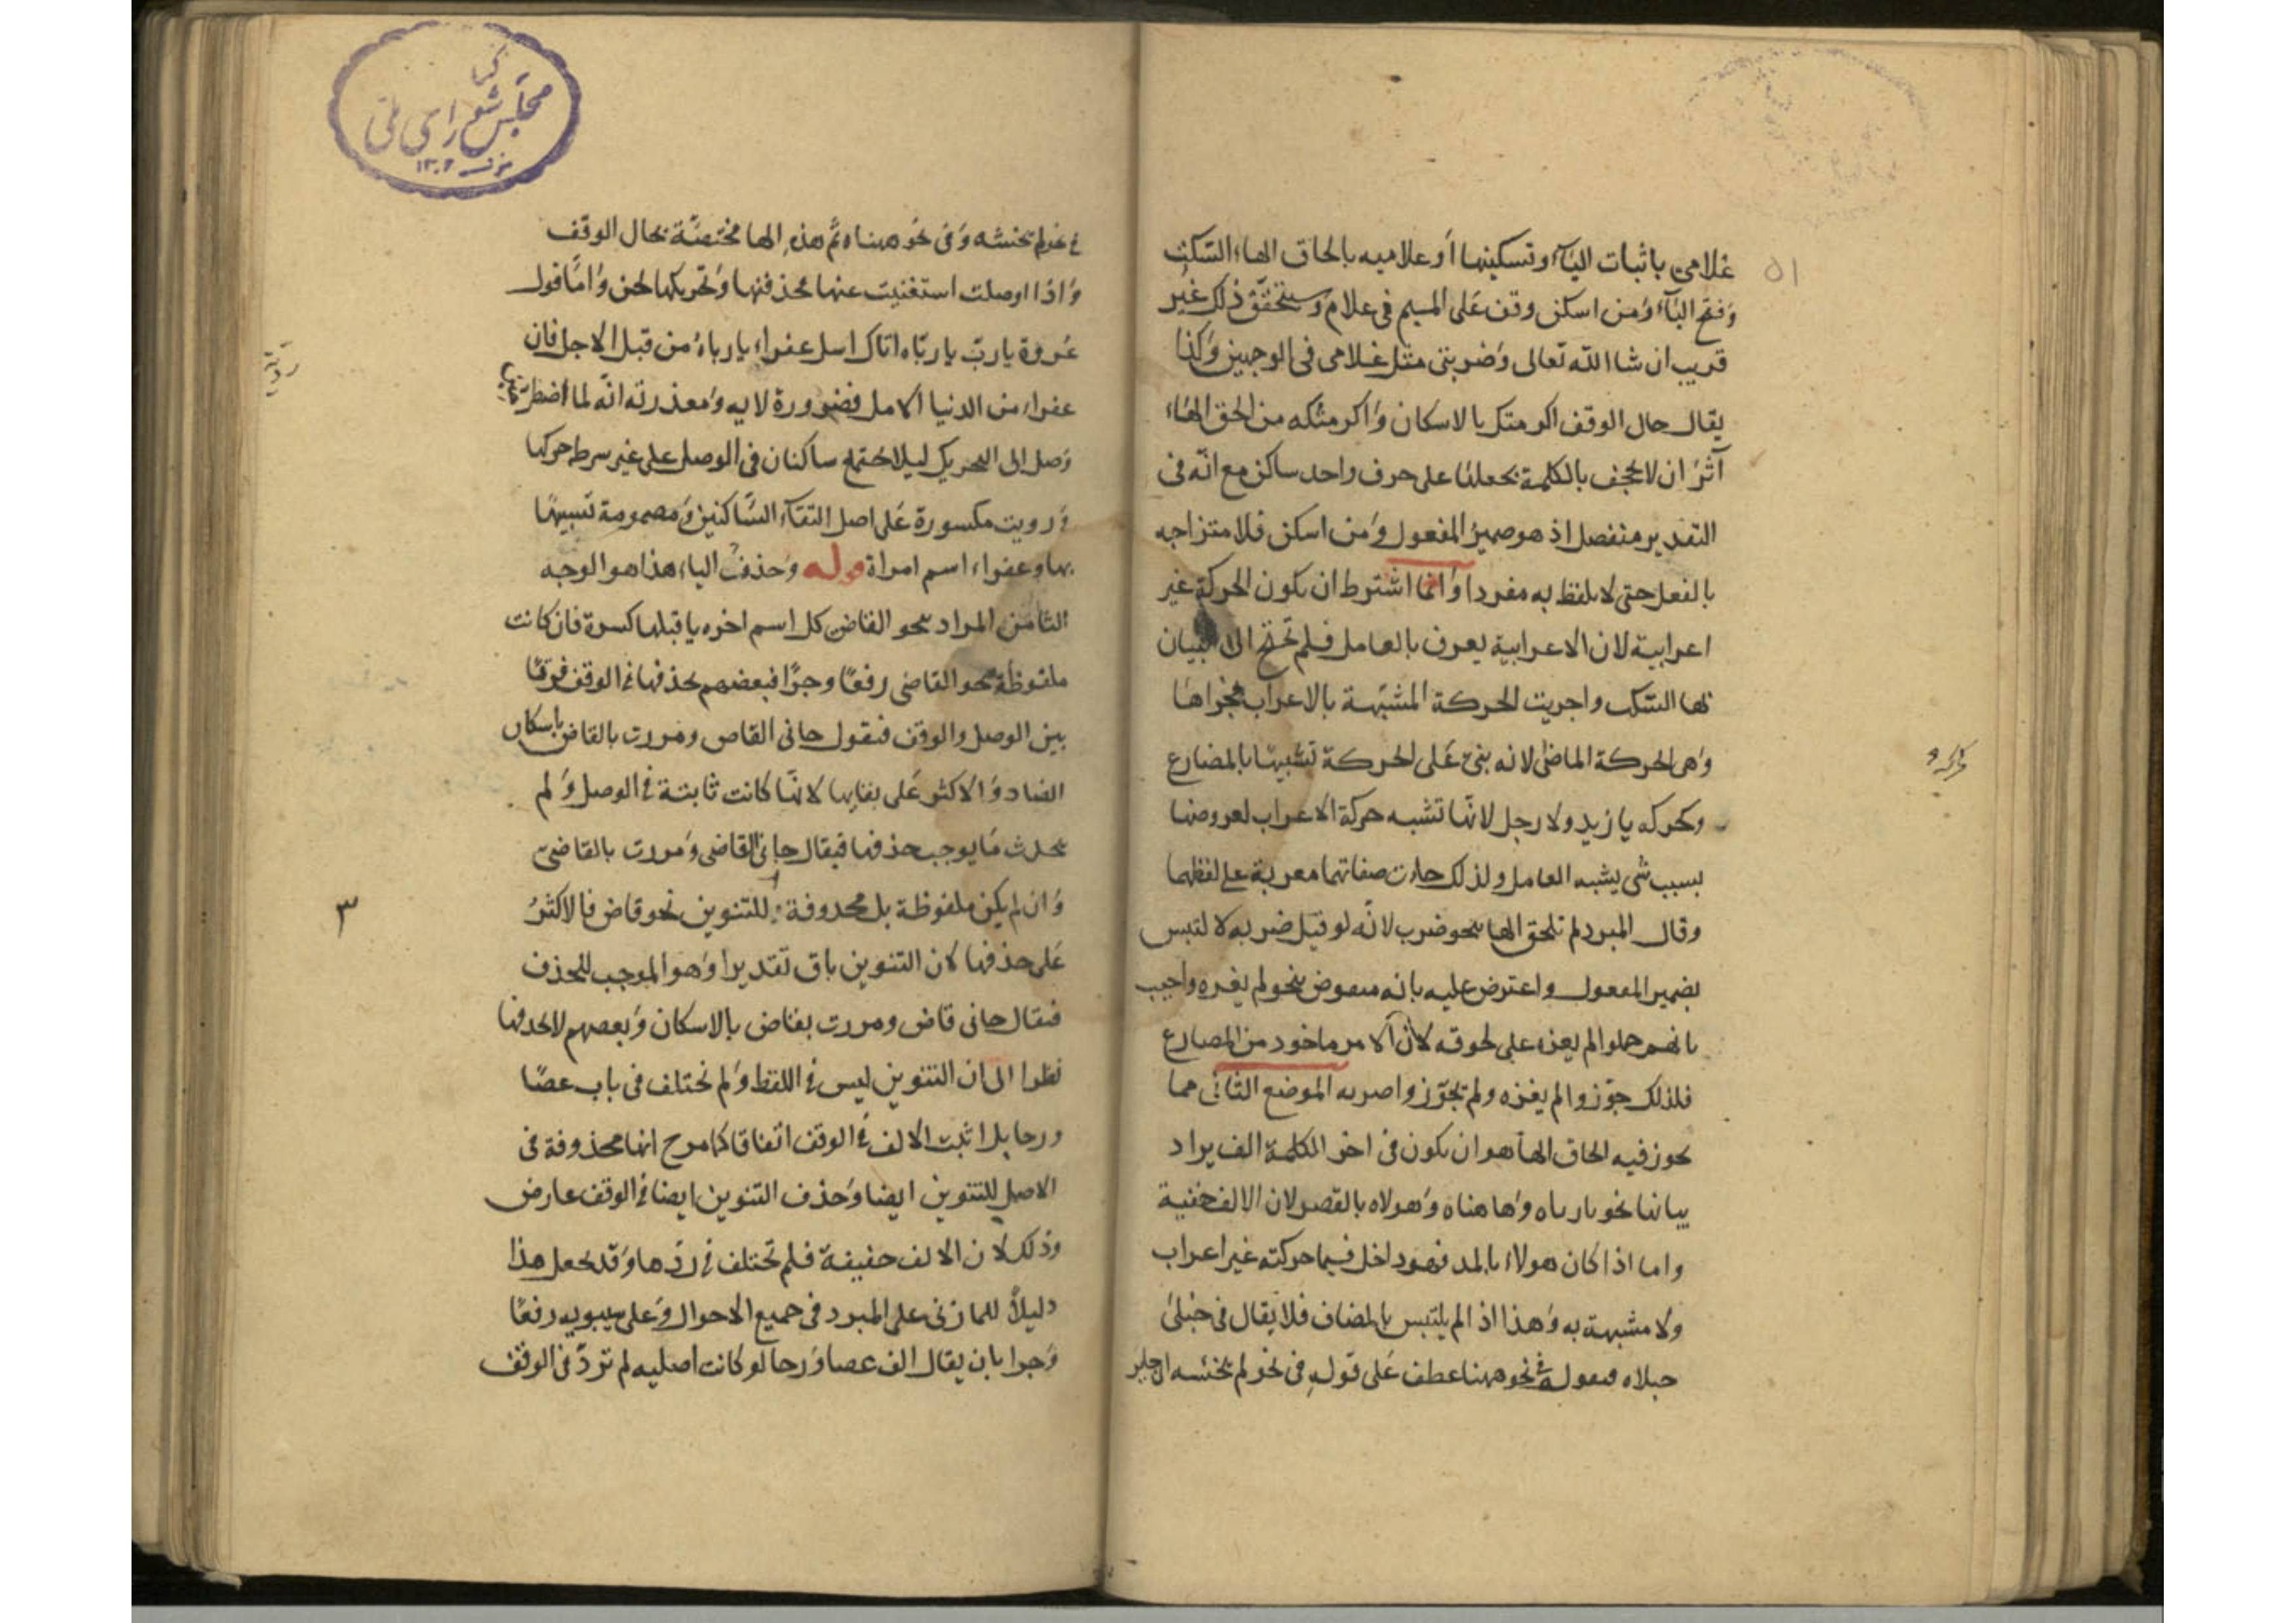 ٥١
غلامى باثبات اليآء وتسكينها أو علاميه بالحاق الهاء السّكت
وَفتح اليآء وَمن اسكن وقف عَلى الميم فى علام وَستحقّق ذلك غير
قريب ان شا الله تعالى وَضربنى مثل غلامى فى الوجهين وَكذا
يقال حال الوقف اكرمتك بالاسكان وَاكرمتكه من الحق الهاء
آثر ان لا يجحف بالكلمة بجعلها على حرف واحد ساكن مع انّه فى
التقدير منفصل اذ هو ضمير المفعول وَمن اسكن فلامتزاجه
بالفعل حتى لا يلفظ به مفردا وَانما اشترط ان يكون الحركة غير
اعرابية لان الاعرابية يعرف بالعامل فلم تحتج الى البيان
بها السّكت واجريت الحركة المشبّهة بالاعراب مجراها
وَهى الحركة الماضى لانه بنى عَلى الحركة تشبيهًا بالمضارع
وكحركه يا زيد ولا رجل لانّها تشبه حركة الاعراب لعروضها
بسبب شى يشبه العامل ولذلك جات صفاتهما معربة على لفظهما
وقال المبرد لم تلحق الها نحو ضرب لانّه لو قيل ضربه لا لتبس
بضمير المفعول واعترض عليه بانه منقوض بنحو لم يغزه واجيب
بانهم حملوا لم يغزه على لحوقه لان الامر ماخود من المضارع
فلذلك جوّزوا لم يغزه ولم تجوّزوا ضربه الموضع الثانى مما
يجوز فيه الحاق الهآ هو ان يكون فى اخر الكلمة الف يراد
بيانها نحو يارباه وَهاهناه وَهولاه بالقصر لان الالف خفية
واما اذا كان هولاء بالمد فهو داخل فيما حركته غير اعراب
ولا مشبهة به وَهذا اذا لم يلتبس بالمضاف فلا يقال فى حبلى
حبلاه قوله فى نحو ههنا عطف عَلى قوله فى نحو لم يخشه
فى نحو لم يخشه وَفى نحو ههناه ثم هذه الها مختصّة بحال الوقف
وَاذا اوصلت استغنيت عنها فحذفتها وَتحريكها لحن وَامّا قول
عُروة يا ربّ يا ربّاه اتاك اسل عفراء يا رباهُ من قبل الاجل فان
عفراء من الدنيا الامل فضرورة لا به وَمعذرته انّه لما اضطر
وَصل الى التحريك ليلا يجتمع ساكنان فى الوصل على غير شرط حركها
وَرويت مكسورة عَلى اصل التقآء السّاكنين وَمضمومة تشبيهًا
بها وعفراء اسم امراة قوله وَحذف الياء هذا هو الوجه
الثامن المراد بنحو القاضى كل اسم اخره يا قبلها كسرة فان كانت
ملفوظة نحو القاضى رفعًا وجرًا فبعضهم يحذفها فى الوقف فرقًا
بين الوصل والوقف فتقول جانى القاض ومررت بالقاض باسكان
الضاد وَالاكثر عَلى بقايها لانّها كانت ثابتة فى الوصل وَلم
يحدث مَا يوجب حذفها فيقال جانى القاضى وَمررت بالقاضى
وَان لم يكن ملفوظة بل محذوفة للتنوين نحو قاض فالاكثرُ
عَلى حذفها لان التنوين باق تقديرا وَهو الموجب للحذف
فيقال جانى قاض ومررت بقاض بالاسكان وَبعضهم لا يحذفها
نظرا الى ان التنوين ليس فى اللفظ وَلم تختلف فى باب عصًا
ورحا بل اثبت الالف فى الوقف اتفاقا كما مرح انها محذوفة فى
الاصل للتنوين ايضا وَحذف التنوين ايضا فى الوقف عارض
وَذلك لان الالف خفيفة فلم تختلف فى ردّها وَقد يجعل هذا
دليلاً للمازنى على المبرد فى جميع الاحوال وَعلى سيبويه رفعًا
وَجرا بان يقال الف عصا وَرحا لو كانت اصليه لم تردّ فى الوقف
٣
مجلس شوراى ملى
١٣٠٢